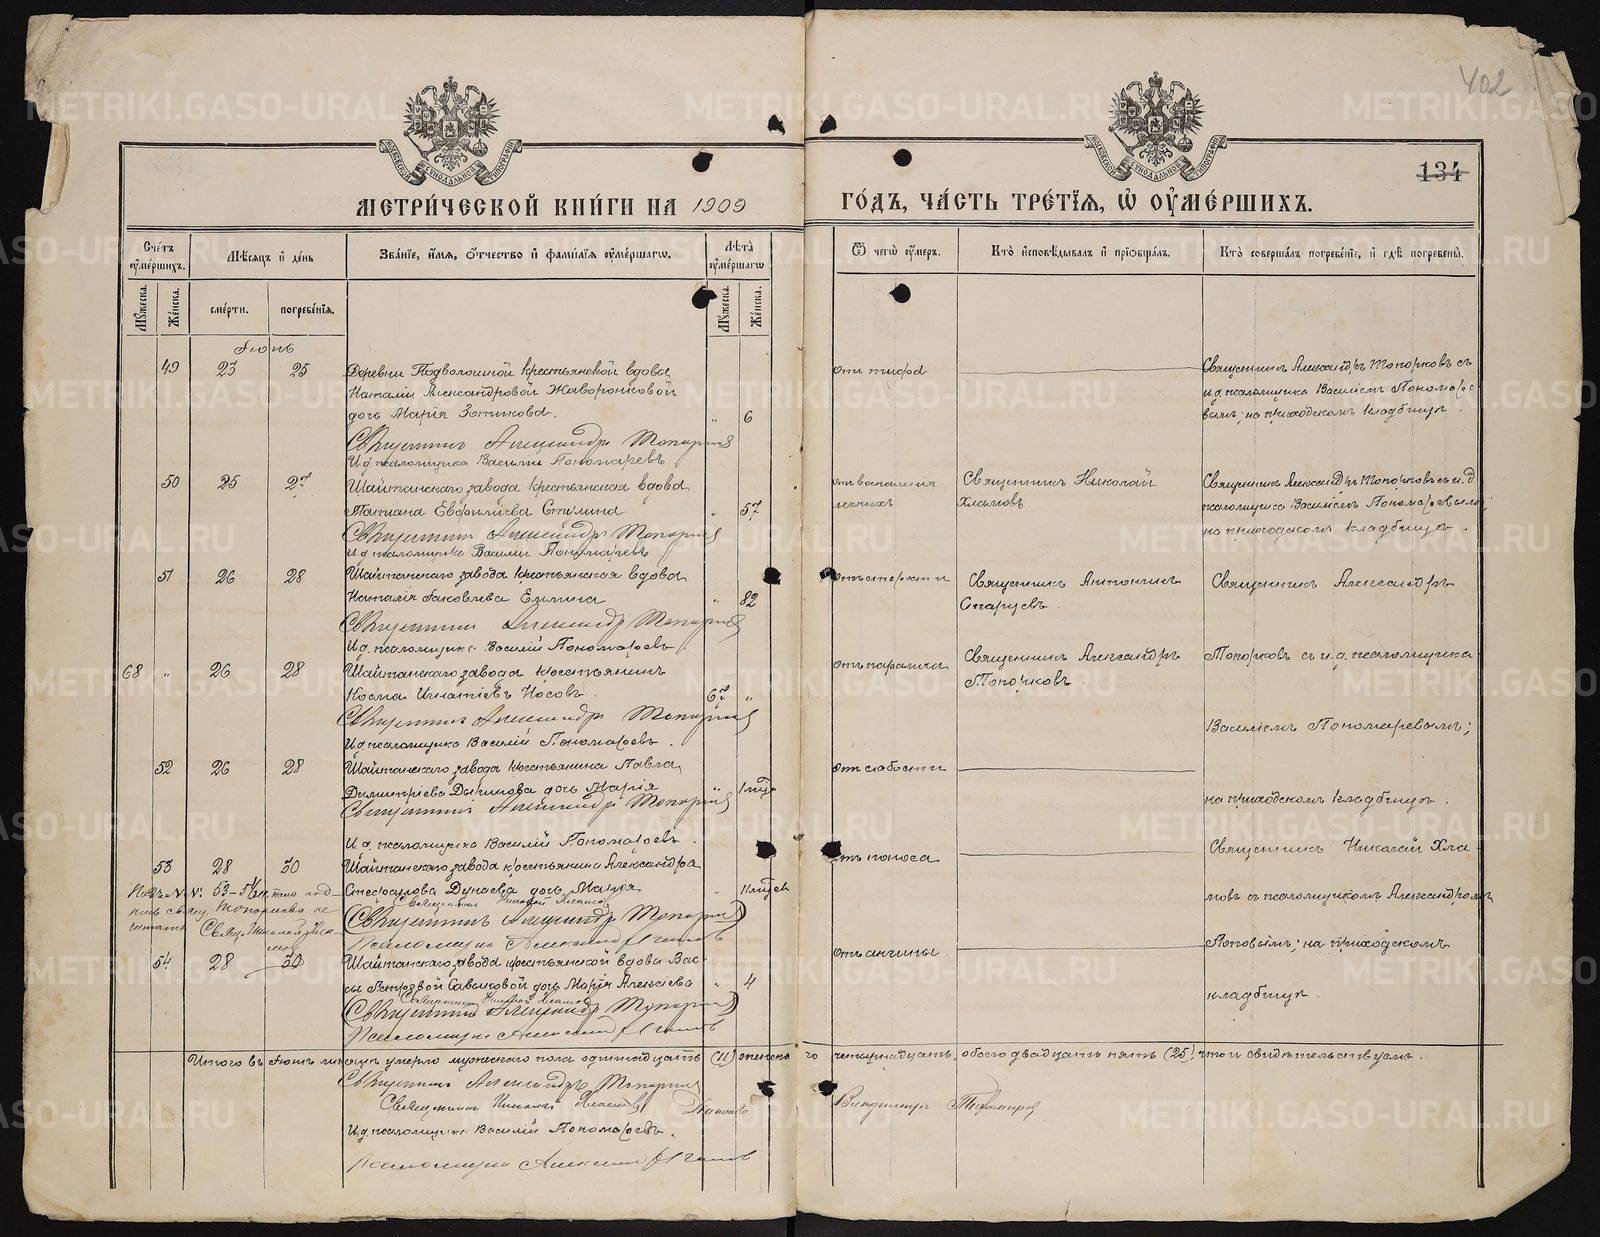 402
134
МЕТРИ́ЧЕСКОЙ КНИ́ГИ НА 1909
ГО́ДЪ, ЧА́СТЬ ТРЕ́ТІѦ, Ѿ ОУМЕ́РШИХЪ.
Сче́тъ оуме́ршихъ.
Мѣ́сяцъ и де́нь
Зва́ніе, и́мя, о́тчество и фами́лія оуме́ршагѡ.
Лѣ́та оуме́ршагѡ
Ѿ чегѡ̀ оу́меръ.
Кто̀ исповѣ́дывалъ и пріобща́лъ.
Кто̀ соверша́лъ погребе́ніе, и гдѣ̀ погребены̀.
Му́жеска.
Же́нска.
сме́рти.
погребе́нія.
Му́жеска.
Же́нска.
Іюнь
49 23 25 Деревни Подволошной крестьянской вдовы
Наталіи Александровой Жаворонковой
дочь Марія Зотикова. " 6
Священникъ Александръ Топорковъ
И.д. псаломщика Василій Пономаревъ
отъ тифа
Священникъ Александръ Топорковъ съ
и.д. псаломщика Василіемъ Пономаре-
вымъ; на приходскомъ кладбищѣ.
50 25 27 Шайтанскаго завода крестьянская вдова
Татіана Евфиміева Стулина " 57
Священникъ Александръ Топорковъ
И.д. псаломщика Василій Пономаревъ
отъ воспаленія
легкихъ
Священникъ Николай
Хламовъ
Священникъ Александръ Топорковъ съ и.д.
псаломщика Василіемъ Пономаревымъ;
на приходскомъ кладбищѣ.
51 26 28 Шайтанскаго завода крестьянская вдова
Наталія Іаковлева " 82
Священникъ Александръ Топорковъ
И.д. псаломщика Василій Пономаревъ.
отъ старости
Священникъ Антонинъ
Старцевъ.
Священникъ Александръ
68 " 26 28 Шайтанскаго завода крестьянинъ
Косма Игнатіевъ Носовъ. 67 "
Священникъ Александръ Топорковъ
И.д. псаломщика Василій Пономаревъ.
отъ паралича
Священникъ Александръ
Топорковъ.
Топорковъ съ и.д. псаломщика
Василіемъ Пономаревымъ;
52 26 28 Шайтанскаго завода крестьянина Павла
Димитріева дочь Марія " 1 мѣс
Священникъ Александръ Топорковъ
И.д. псаломщика Василій Пономаревъ.
отъ слабости
на приходскомъ кладбищѣ.
53 28 30 Шайтанскаго завода крестьянина Александра
Стефанова Дунаева дочь Марія " 11 мѣсяц
Священникъ Николай Хламовъ
(Священникъ Александръ Топорковъ)
Псаломщикъ
отъ поноса
Священникъ Николай Хла-
мовъ съ псаломщикомъ Александромъ
Поповымъ; на приходскомъ
кладбищѣ.
№№ 53-54
Топоркова не
читать
Свящ. Николай Хла-
мовъ
54 28 30 Шайтанскаго завода крестьянской вдовы Вас-
сы Петровой Савиновой дочь Марія Алексіева " 4
Священникъ Николай Хламовъ
(Священникъ Александръ Топорковъ)
Псаломщикъ
отъ ангины
Итого въ Іюнѣ мѣсяцѣ умерло мужескаго пола одиннадцать (11) женска го четырнадцать, обоего двадцать пять (25), что и свидѣтельствуемъ.
Священникъ Александръ Топорковъ
Священникъ Николай Хламовъ Діаконъ Владимиръ
И.д. псаломщика Василій Пономаревъ.
Псаломщикъ